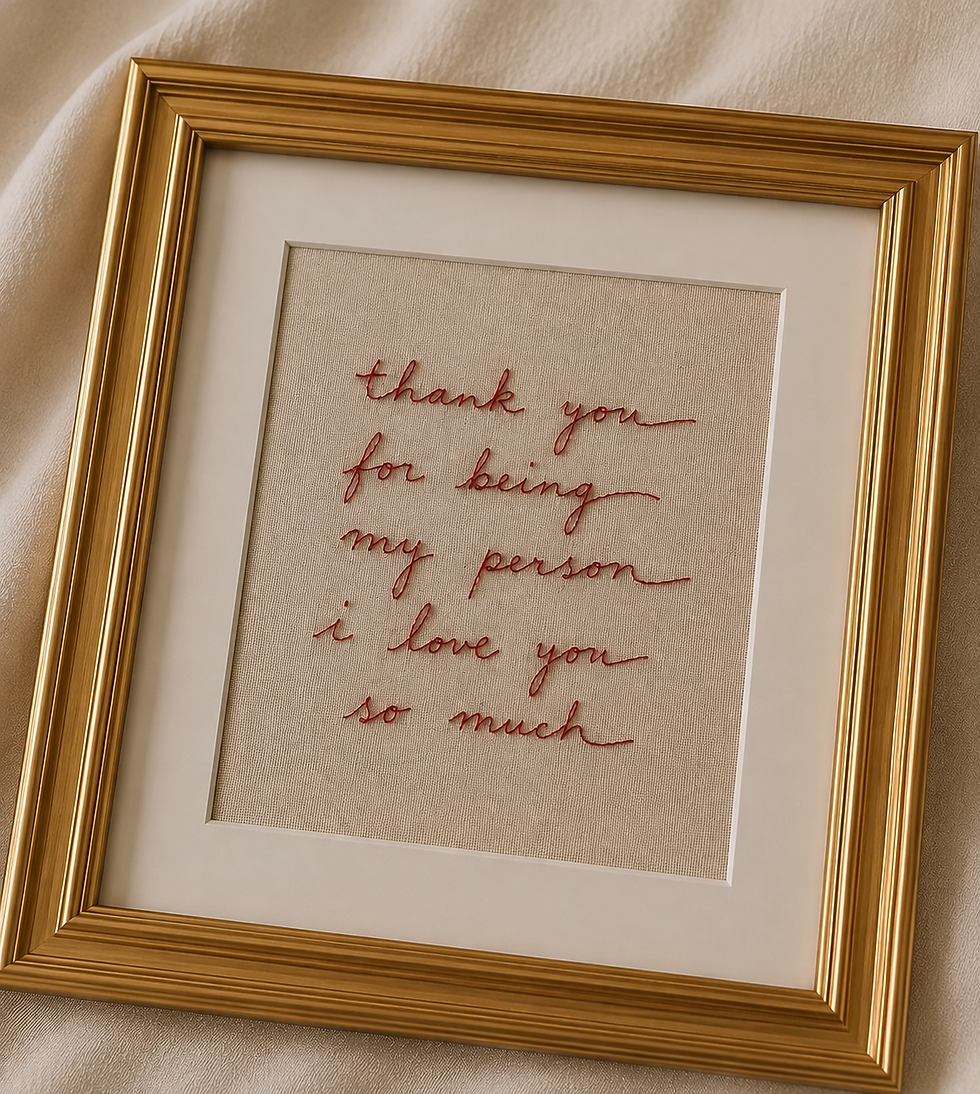 thank you
for being
my person
i love you
so much